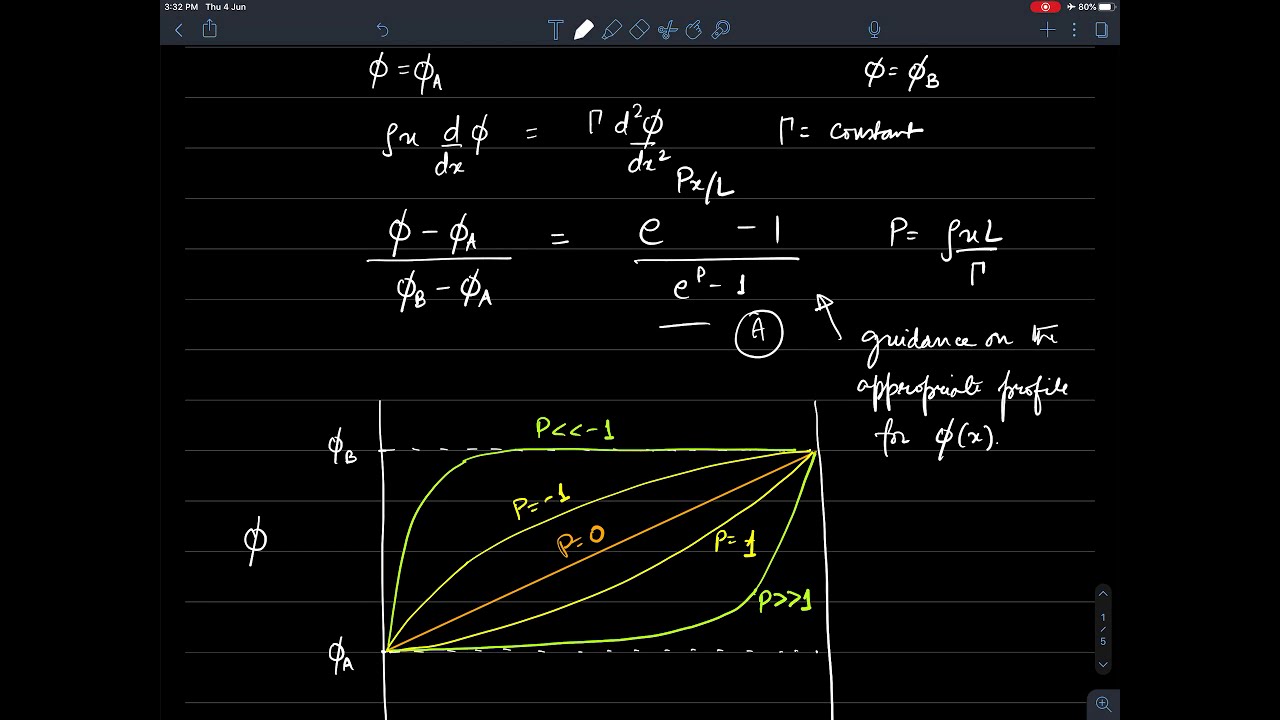 3:32 PM Thu 4 Jun
80%
ϕ = ϕ_A
ϕ = ϕ_B
ρu d/dx ϕ = Γ d²ϕ/dx²
Γ = constant
(ϕ - ϕ_A)/(ϕ_B - ϕ_A) = (e^(Px/L) - 1)/(e^P - 1)
P = ρuL/Γ
A
guidance on the
appropriate profile
for ϕ(x).
P<<-1
ϕ_B
P=-1
P=0
P=1
ϕ
P>>1
ϕ_A
1
/
5